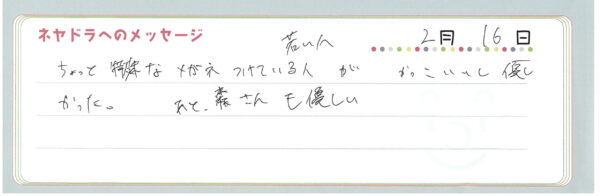 ネヤドラへのメッセージ
若い人
2月 16日
ちょっと特殊なメガネつけている人が かっこいいし優し
かった。 あと、森さんも優しい